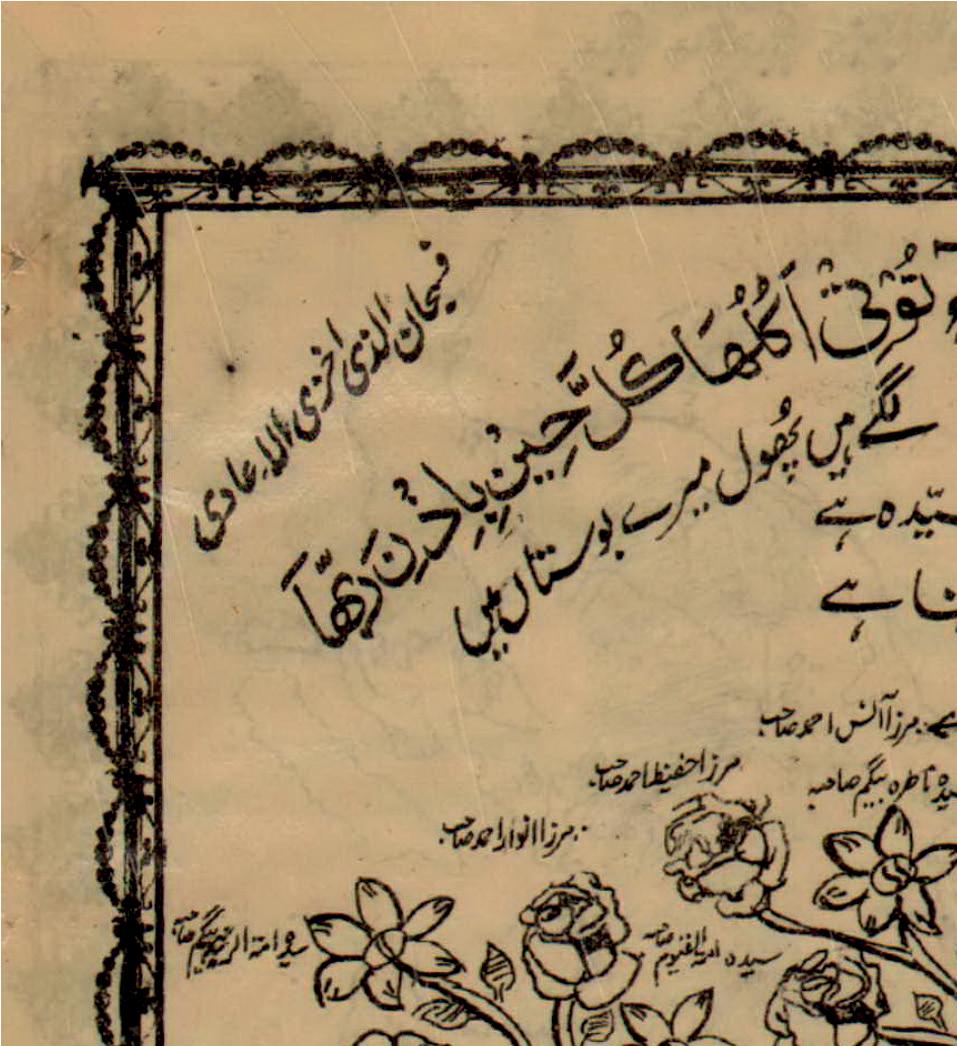 تُؤْتِیْ اُکُلَھَا کُلَّ حِیْنٍ بِاِذْنِ رَبِّھَا
فسبحان الذی اخزی الاعادی
لگے ہیں پھول میرے بوستاں میں
سیّدہ ہے
ہے
مرزا انس احمد صاحب
سیدہ ناصرہ بیگم صاحبہ
مرزا حفیظ احمد صاحب
مرزا انوار احمد صاحب
سیدہ امۃ القیوم صاحبہ
سیدہ امۃ الرشید بیگم صاحبہ